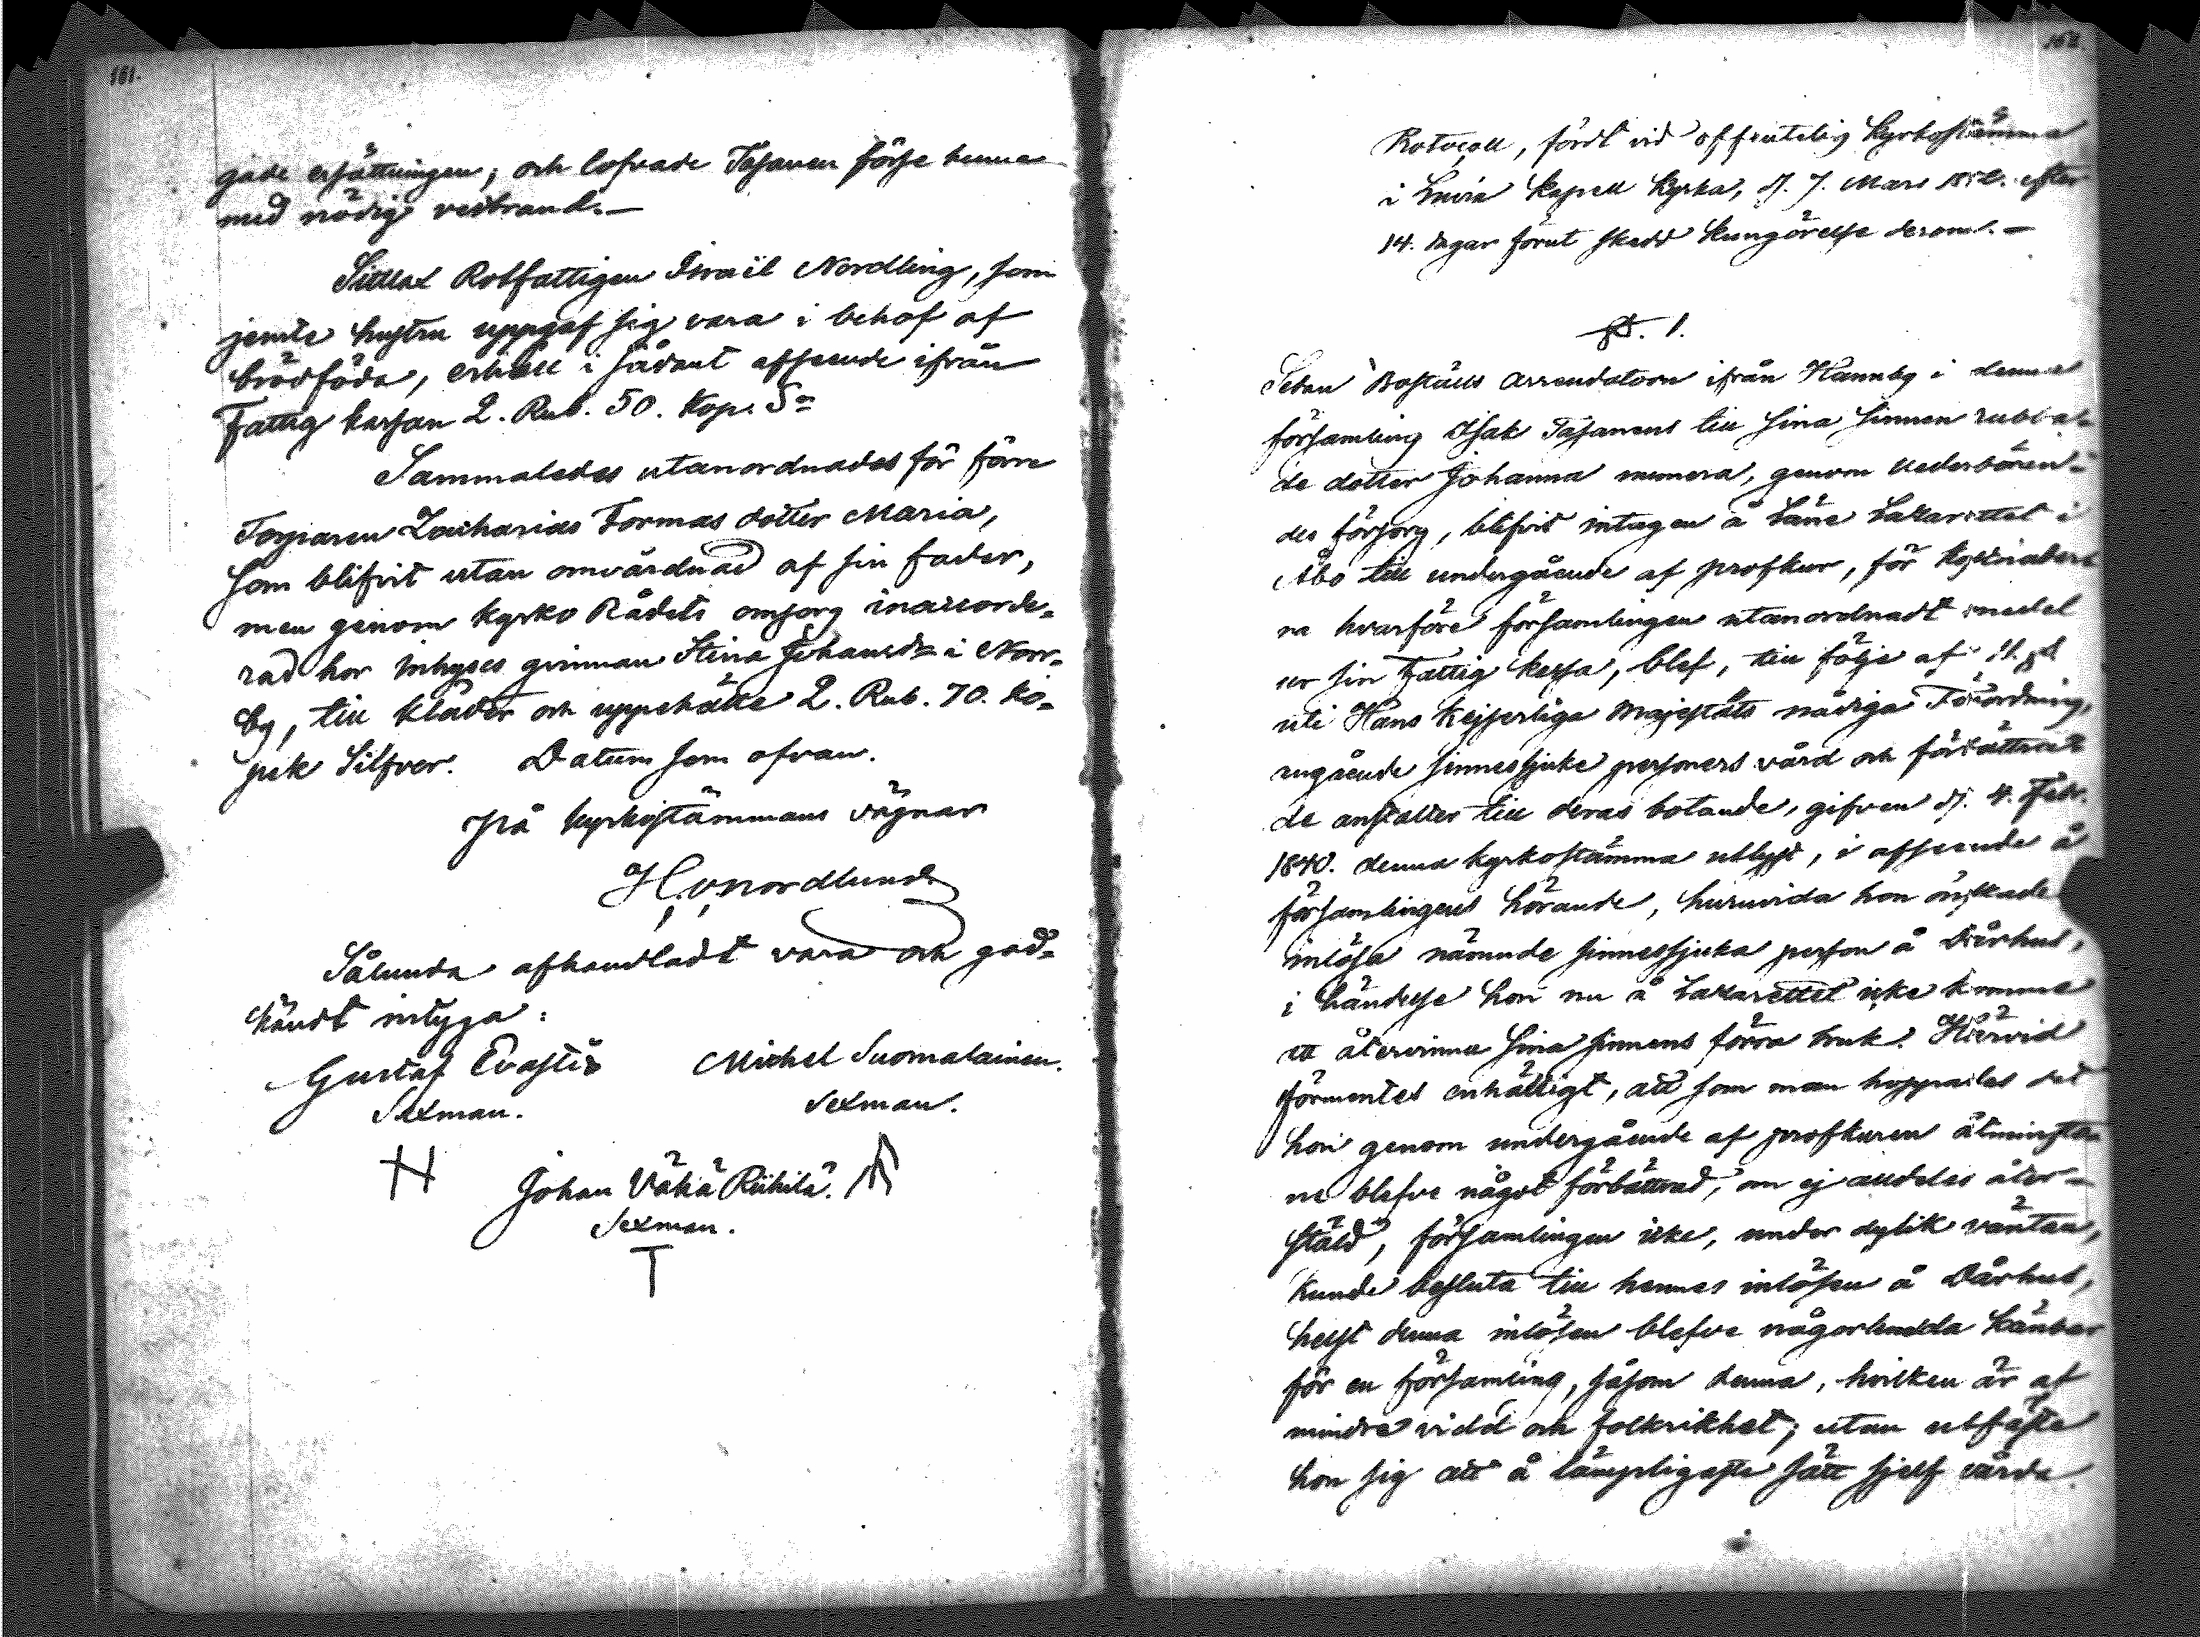 161.
gade ersättningen; och lofvade Tasanen förse henne
med nödig vedbrand.—
Sittlat Rotfattigen Israël Nordling, som
jemte hustru uppgaf sig vara i behof af
brödföda, erhöll i sådant afseende ifrån
Fattig kassan 2. Rub. 50. Kop. S=
Sammaledes utanordnades för förre
Torparen Zacharias Formas dotter Maria,
som blifvit utan omvårdnad af sin fader,
men genom Kyrko Rådets omsorg inaccorde=
rad hos Inhyses qvinnan Stina Johansdr i Norr=
by, till kläder och uppehälle 2. Rub. 70. ko=
pek Silfver. Datum som ofvan.
På kyrkostämmans vägnar
H. v. Nordlund
Sålunda afhandladt vara och god=
kändt intyga:
Gustaf Evastie Michel Suomalainen.
Sexman. Sexman.
Johan Vähä Riihilä.
Sexman.
162
Protocoll, fördt vid offentelig Kyrkostämma
i Luvia Kapell Kyrka, d. 7. Mars 1852. efter
14. dagar förut skedd kungörelse derom.—
§. 1.
Sedan Boställs Arrendatorn ifrån Hannby i denna
församling Isak Tasanens till sina sinnen rubba=
de dotter Johanna numera, genom vederbören=
des försorg, blifvit intagen å Läne Lazarettet i
Åbo till undergående af profkur, för kostnader=
na hvarföre församlingen utanordnadt medel
ur sin Fattig kassa, blef, till följe af 11. §
uti Hans Kejserliga Majestäts nådiga Förordning,
angående sinnessjuke personers vård och förbättra=
de anstalter till deras botande, gifven d. 4. Febr.
1840. denna kyrkostämma utlyst, i afseende å
församlingens hörande, huruvida hon önskade
inlösa nämnde sinnessjuka person å Dårhus,
i händelse hon nu å Lazarettet icke komme
att återvinna sina sinnens förra bruk. Härvid
förmentes enhälligt, att som man hoppades det
hon genom undergående af profkuren åtminsto=
ne blefve något förbättrad, om ej alldeles åter=
stäld, församlingen icke, under dylik väntan,
kunde besluta till hennes inlösen å Dårhus,
helst denna inlösen blefve någorlunda känbar
för en församling, såsom denna, hvilken är af
mindre vidd och folkrikhet; utan utfäste
hon sig att å lämpligaste sätt sjelf vårda